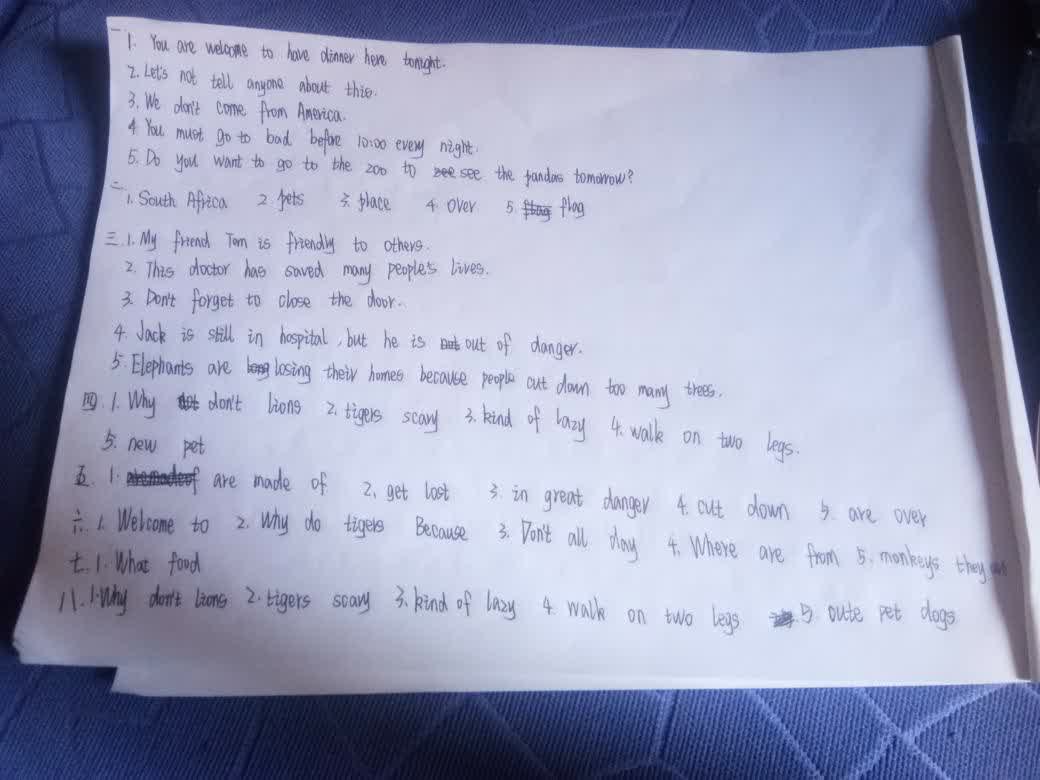 一 1. You are welcome to have dinner here tonight.
2. Let's not tell anyone about this.
3. We don't come from America.
4 You must go to bad before 10:00 every night.
5. Do you want to go to the zoo to see the pandas tomorrow?
二 1. South Africa 2 pets 3. place 4. over 5. flag
三 1. My friend Tom is friendly to others.
2. This doctor has saved many people's lives.
3. Don't forget to close the door.
4. Jack is still in hospital, but he is out of danger.
5. Elephants are losing their homes because people cut down too many trees.
四 1. Why don't lions 2. tigers scary 3. kind of lazy 4. walk on two legs.
5. new pet
五. 1. are made of 2. get lost 3. in great danger 4. cut down 5. are over
六. 1. Welcome to 2. Why do tigers Because 3. Don't all day 4. Where are from 5. monkeys they
七. 1. What food
八. 1. Why don't lions 2. tigers scary 3. kind of lazy 4. walk on two legs 5 cute pet dogs